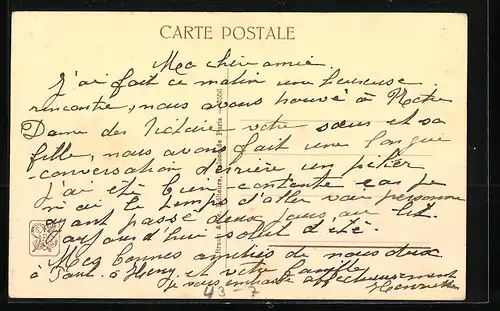 CARTE POSTALE
Ma chère amie.
J'ai fait ce matin une heureuse
rencontre, nous avons trouvé à Notre
Dame des Victoire votre sœur et sa
fille, nous avons fait une longue
conversation derrière un pilier
J'ai été bien contente car je
n'ai eu le temps d'aller voir personne
ayant passé deux jours au lit
aujourd'hui soleil d'été.
Mes bonnes amitiés de nous deux
à Paul. à Heny. et votre famille
je vous embrasse affectueusement
Henriette
43-7
Braun & Cie, Éditeurs, Paris